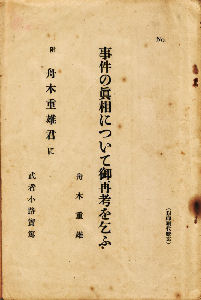 No.
事件の眞相について御再考を乞ふ
舟木重雄
附 舟木重雄君に
武者小路實篤